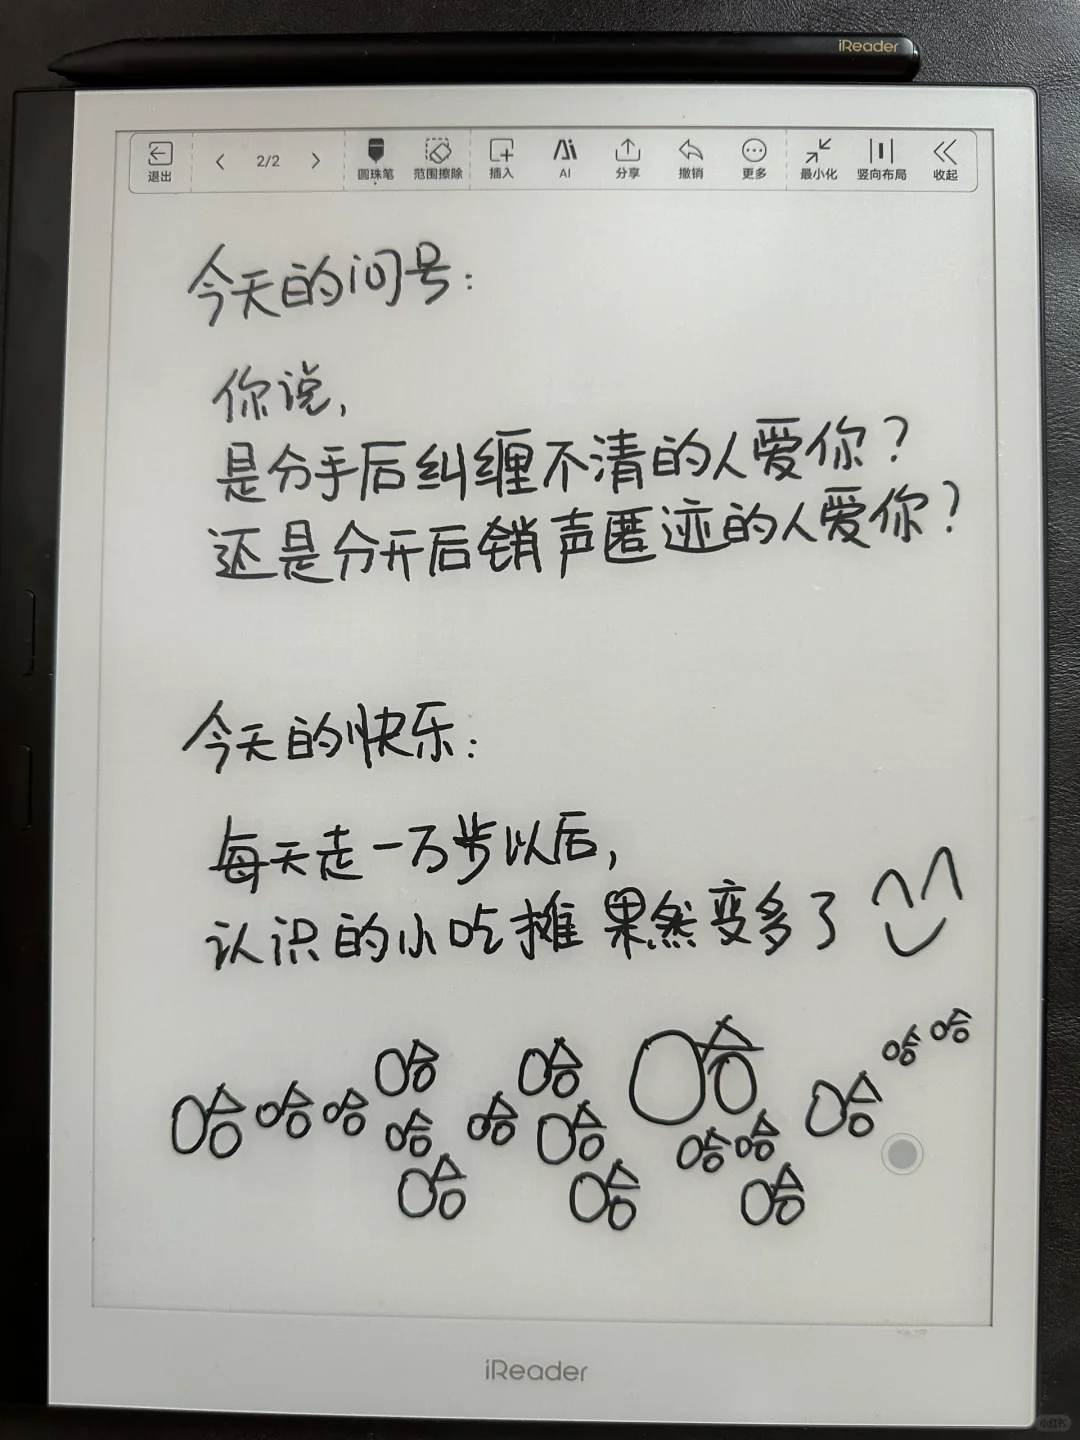 iReader
退出
2/2
圆珠笔
范围擦除
插入
AI
分享
撤销
更多
最小化
竖向布局
收起
今天的问号：
你说，
是分手后纠缠不清的人爱你？
还是分开后销声匿迹的人爱你？
今天的快乐：
每天走一万步以后，
认识的小吃摊果然变多了
哈哈哈哈哈哈哈哈哈哈哈哈哈哈哈哈哈
iReader
小红书